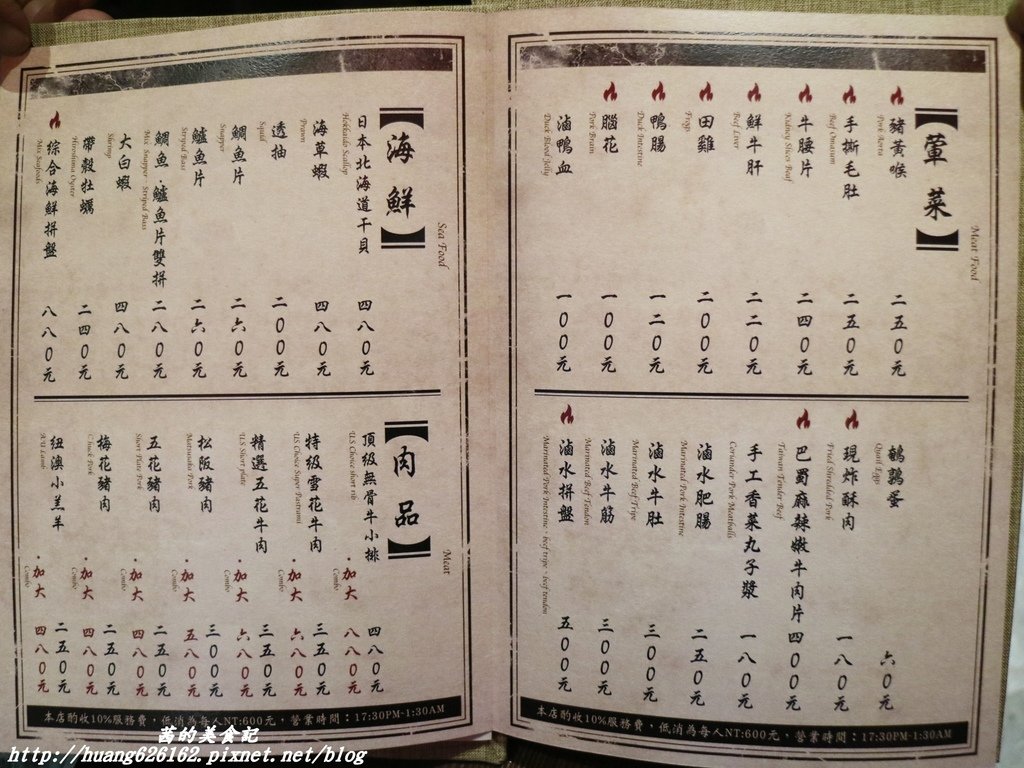 葷菜
Meat Food
豬黃喉
Pork Aorta
二五0元
手撕毛肚
Beef Omasum
二五0元
牛腰片
Kidney Slices Beef
二四0元
鮮牛肝
Beef Liver
二二0元
田雞
Frogs
二00元
鴨腸
Duck Intestine
一二0元
腦花
Pork Brain
一00元
滷鴨血
Duck Blood Jelly
一00元
鵪鶉蛋
Quail Eggs
六0元
現炸酥肉
Fried Shredded Pork
一八0元
巴蜀麻辣嫩牛肉片
Taiwan Tender Beef
四00元
手工香菜丸子漿
Coriander Pork Meatballs
一八0元
滷水肥腸
Marinated Pork Intestine
二五0元
滷水牛肚
Marinated Beef Tripe
三00元
滷水牛筋
Marinated Beef Tendon
三00元
滷水拼盤
Marinated Pork Intestine · beef tripe · beef tendon
五00元
本店酌收10%服務費，低消為每人NT:600元，營業時間：17:30PM-1:30AM
海鮮
Sea Food
日本北海道干貝
Hokkaido Scallop
四八0元
海草蝦
Prawn
四八0元
透抽
Squid
二00元
鯛魚片
Snapper
二六0元
鱸魚片
Striped Bass
二六0元
鯛魚·鱸魚片雙拼
Mix Snapper · Striped Bass
二八0元
大白蝦
Shrimp
四八0元
帶殼牡蠣
Hiroshima Oyster
二四0元
綜合海鮮拼盤
Mix Seafoods
八八0元
肉品
Meat
頂級無骨牛小排
U.S Choice short rib
四八0元
·加大
Combo
八八0元
特級雪花牛肉
U.S Choice Super Pastrami
三五0元
·加大
Combo
六八0元
精選五花牛肉
U.S Short plate
三五0元
·加大
Combo
六八0元
松阪豬肉
Matsusaka Pork
三00元
·加大
Combo
五八0元
五花豬肉
Short Plate Pork
二五0元
·加大
Combo
四八0元
梅花豬肉
Chuck Pork
二五0元
·加大
Combo
四八0元
紐澳小羔羊
N.Z Lamb
二五0元
·加大
Combo
四八0元
本店酌收10%服務費，低消為每人NT:600元，營業時間：17:30PM-1:30AM
茜的美食記
http://huang626162.pixnet.net/blog